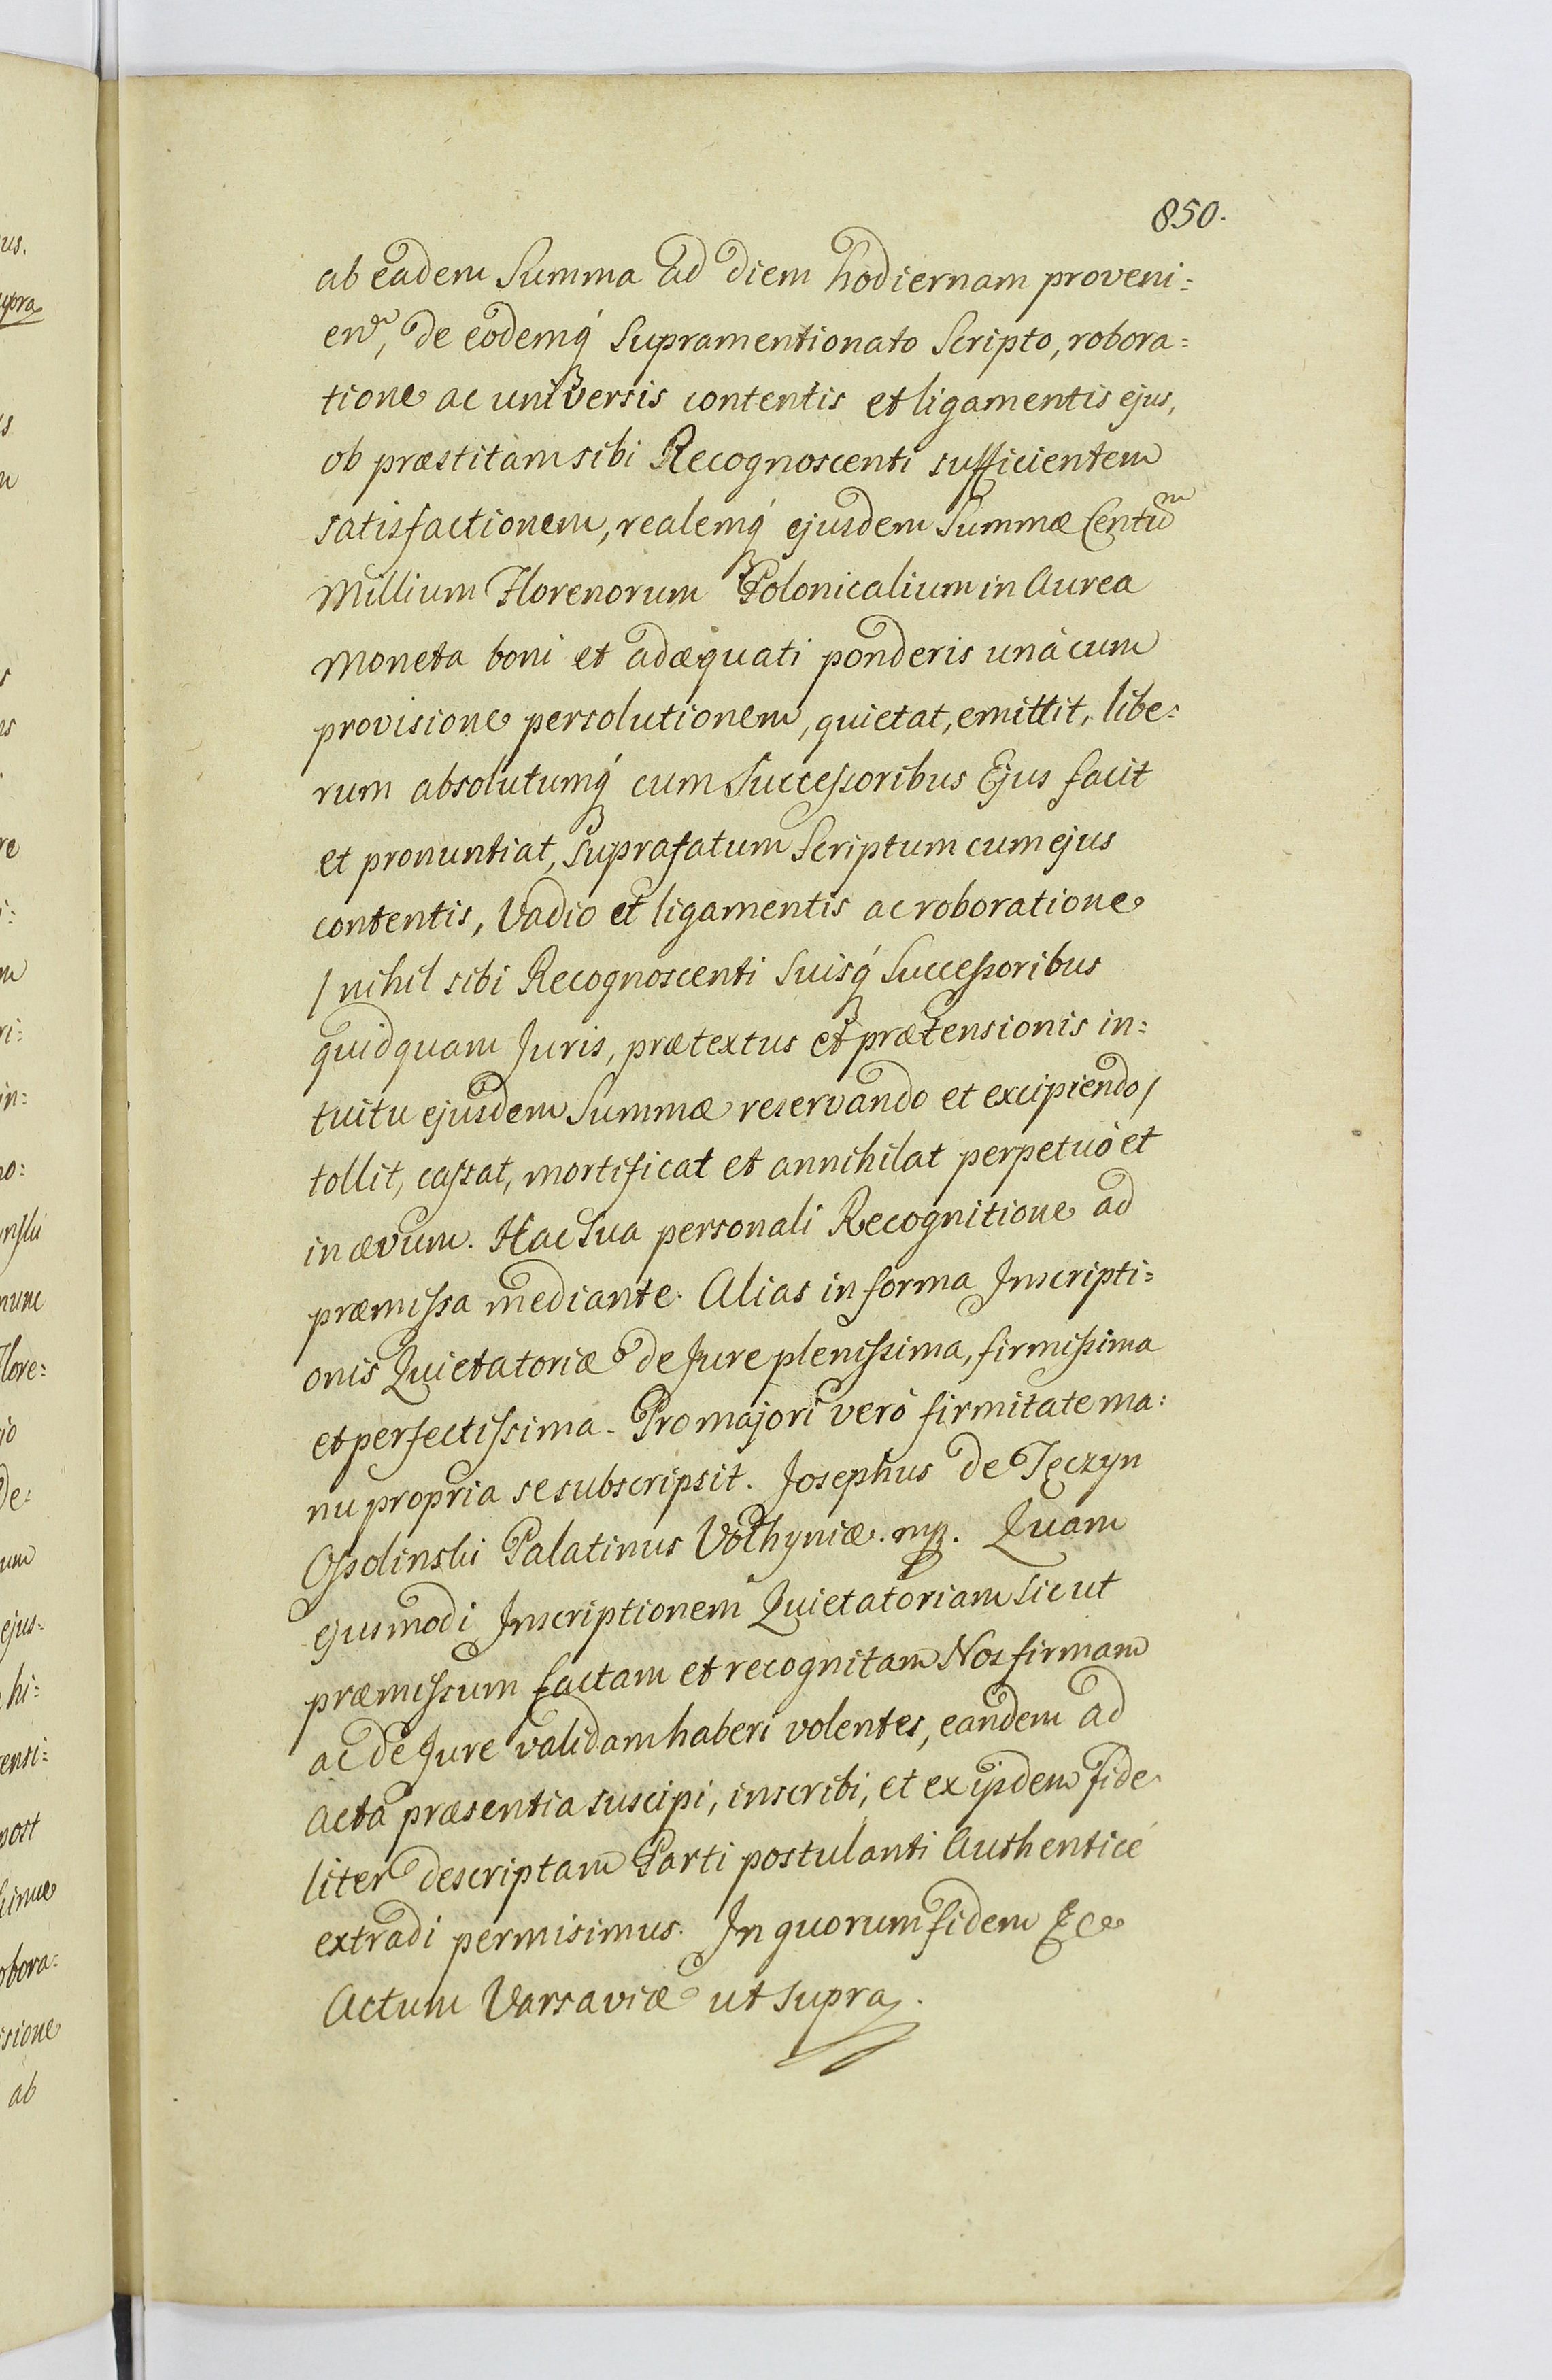 850.
ab eadem Summa ad diem hodiernam proveni=
en., de eodemq́ Supramentionato Scripto, robora=
tione ac universis contentis et ligamentis ejus,
ob præstitam sibi Recognoscenti sufficientem
satisfactionem, realemq́ ejusdem Summæ Centum
Millium Florenorum Polonicalium in Aurea
Moneta boni et adæquati ponderis unà cum
provisione persolutionem, quietat, emittit, libe=
rum absolutumq́ cum Successoribus Ejus facit
et pronuntiat, Suprafatum Scriptum cum ejus
contentis, Vadio et ligamentis ac roboratione
/ nihil sibi Recognoscenti Suisq́ Successoribus
quidquam Juris, prætextus et prætensionis in=
tuitu ejusdem Summæ reservando et excipiendo /
tollit, cassat, mortificat et annihilat perpetuò et
in ævum. Hac Sua personali Recognitione ad
præmissa mediante. Alias in forma Inscripti=
onis Quietatoriæ de Jure plenissima, firmissima
et perfectissima. Pro majori verò firmitate ma=
nu propria se subscripsit. Josephus de Tęczyn
Ossolinski Palatinus Volhyniæ. mp. Quam
ejusmodi Inscriptionem Quietatoriam sicut
præmissum factam et recognitam Nos firmam
ac de Jure validam haberi volentes, eandem ad
Acta præsentia suscipi, inscribi, et ex ijsdem fide
liter descriptam Parti postulanti Authenticè
extradi permisimus. In quorum fidem &c
Actum Varsaviæ ut supra.
us.
upra
s
m
s
ns
re
i:
m
ri:
in:
no:
nski
nunc
Flore:
io
de:
um
ejus=
hi:
ensi:
post
obora:
isione
ab